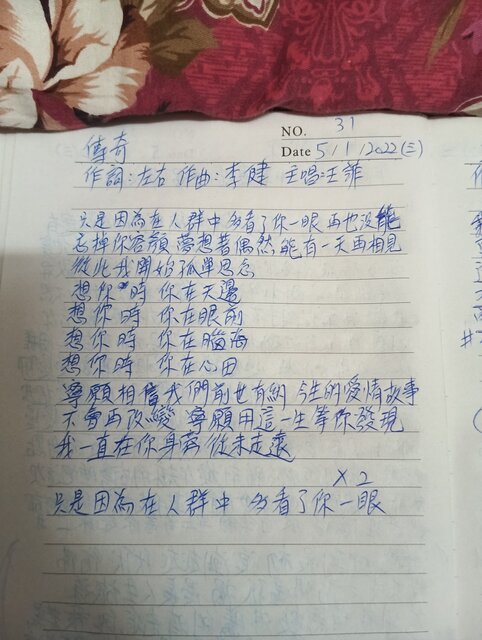 NO. 31
傳奇
Date 5/1/2022(三)
作詞:左右 作曲:李健 主唱:王菲
只是因為在人群中 多看了你一眼 再也沒能
忘掉你容顏 夢想著偶然能有一天再相見
從此我開始孤單思念
想你時 你在天邊
想你時 你在眼前
想你時 你在腦海
想你時 你在心田
寧願相信我們前世有約 今生的愛情故事
不會再改變 寧願用這一生等你發現
我一直在你身旁 從未走遠
x2
只是因為在人群中 多看了你一眼